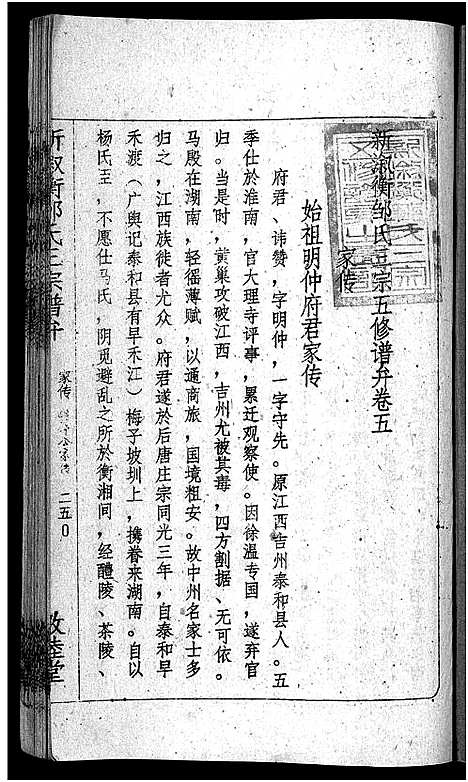 新溆衡邹氏三宗五修谱弁卷五
家传
始祖明仲府君家传
府君、讳赞，字明仲，一字守先。原江西吉州泰和县人。五
季仕於淮南，官大理寺评事，累迁观察使。因徐温专国，遂弃官
归。当是时，黄巢攻破江西，吉州尤被其毒，四方割据、无可依。
马殷在湖南，轻徭薄赋，以通商旅，国境粗安。故中州名家士多
归之，江西族徙者尤众。府君遂於后唐庄宗同光三年，自泰和早
禾渡（广舆记泰和县有早禾江）梅子坡圳上，携眷来湖南。自以
杨氏臣，不愿仕马氏，阴觅避乱之所於衡湘间，经醴陵、茶陵、
新溆衡邹氏三宗谱弁
家传
宗传
二五0
敦睦堂